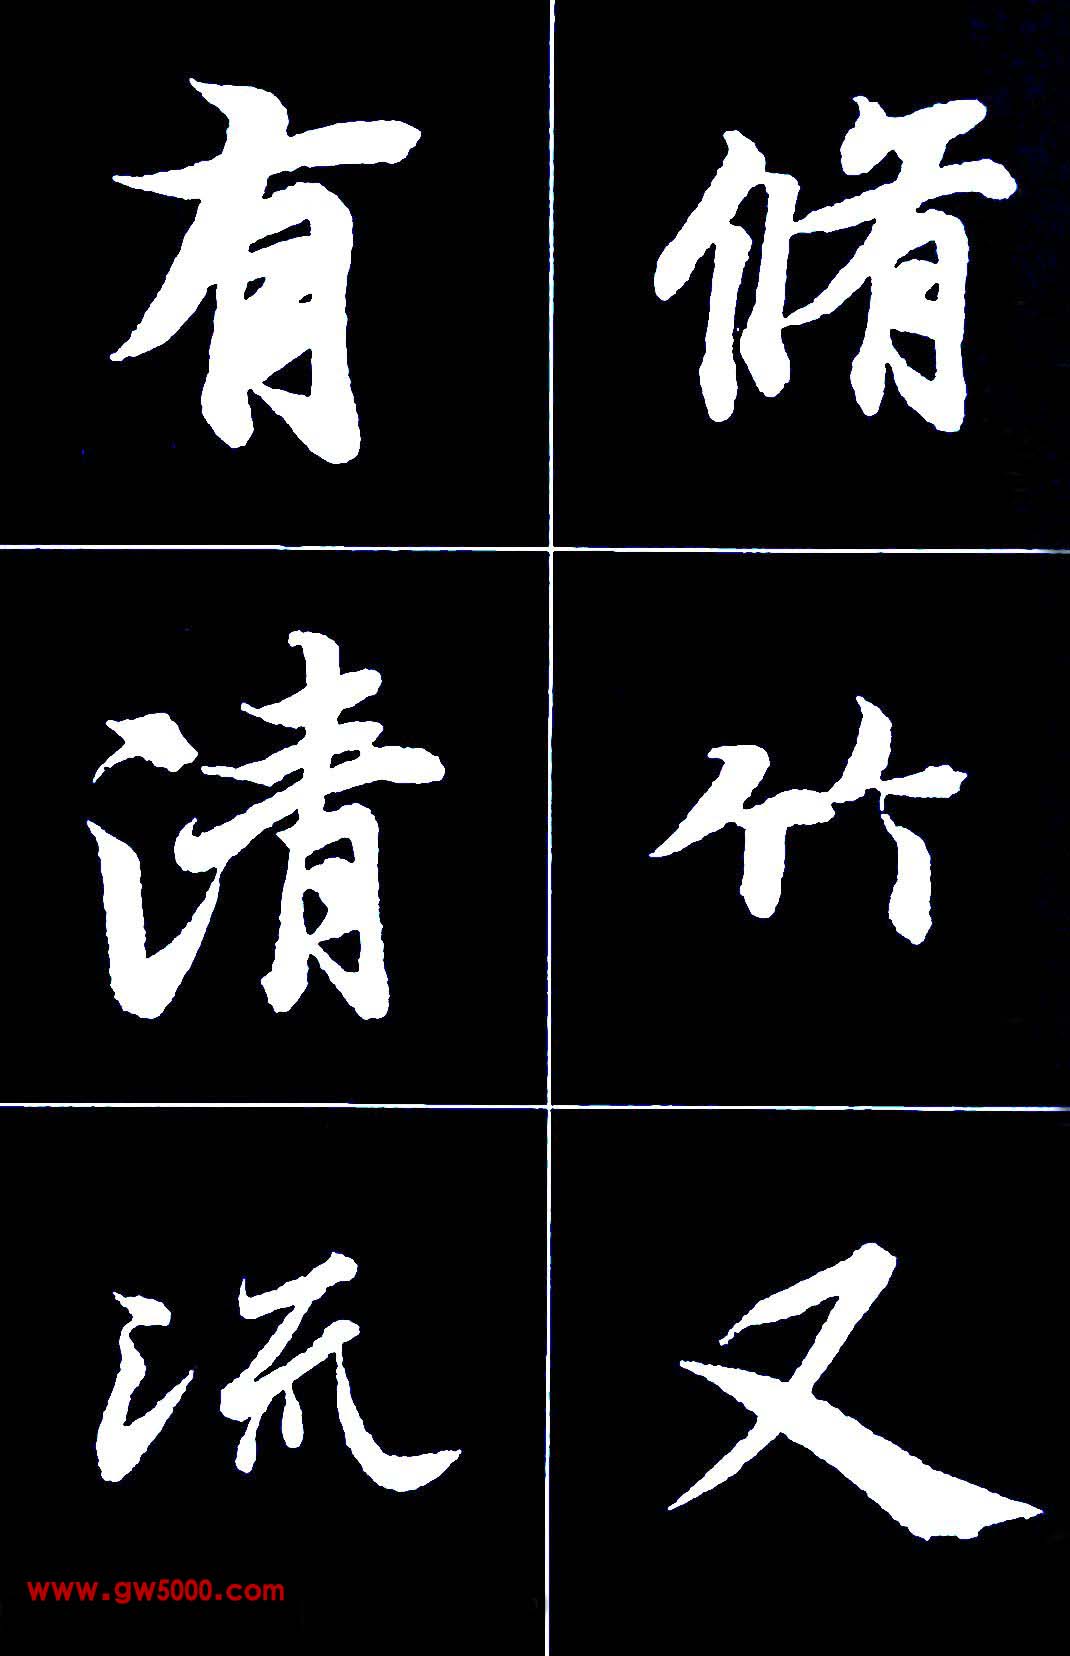 脩竹又
有清流
www.gw5000.com